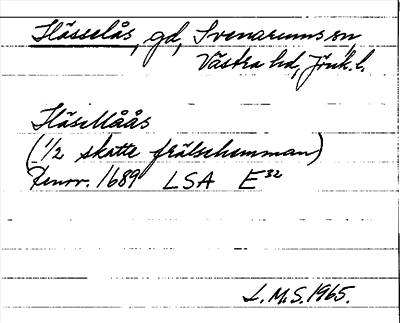 Hässelås, gd, Svenarums sn,
Västra hd, Jönk. l.
Häsellåås
(1/2 skatte frälsehemman)
Renov. 1689 LSA E32
L.M.S. 1965.